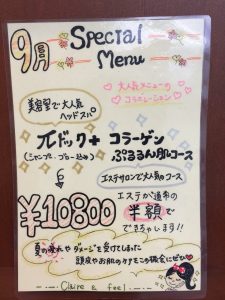 9月 Special Menu
大人気メニューの
コラボレーション
美容室で大人気
ヘッドスパ
コラーゲン
ぷるるん肌コース
(シャンプー、ブロー込み)
エステサロンで大人気のコース
¥10800
エステが通常の
半額で
できちゃいます!!
夏の疲れやダメージを受けてしまった
頭皮やお肌のケアをこの機会にぜひ
Claire & feel